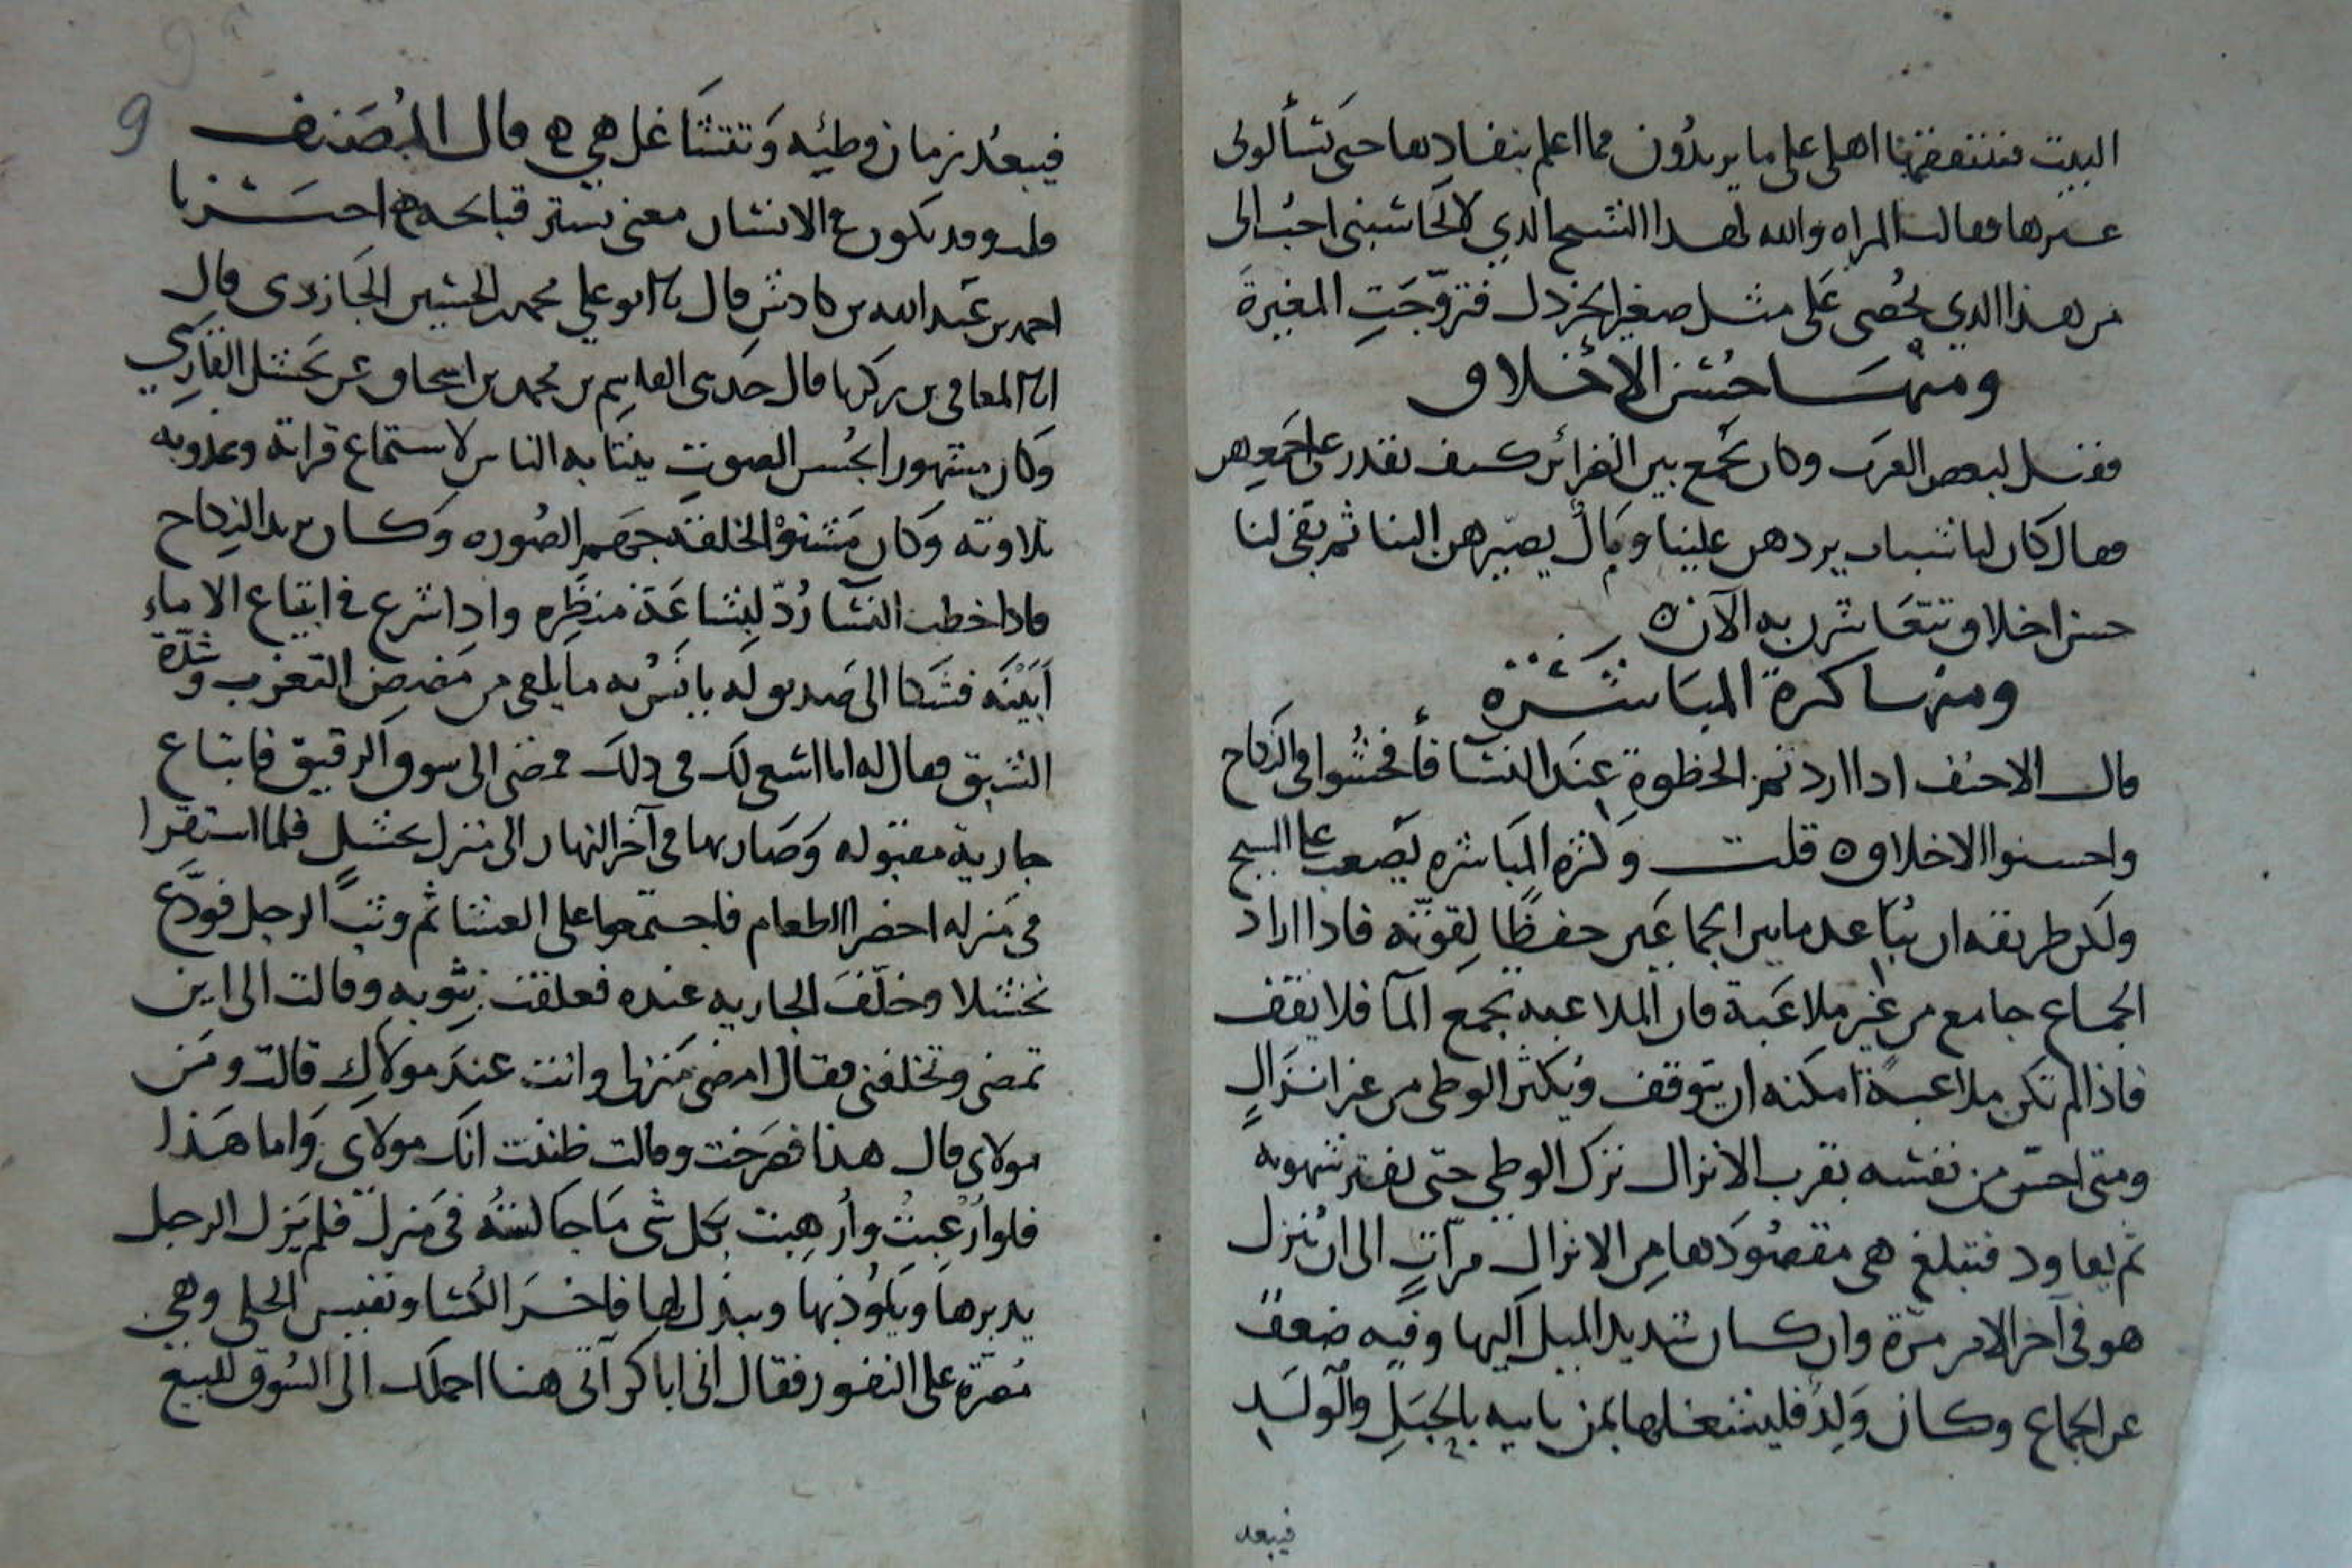 البيت فينفقها اهلى على ما يريدون فما اعلم بنفادها حتى يسألونى
غيرها فقالت المراه والله لهذا الشيخ الذي لا يحاسبنى احب الى
من هذا الذي يحصى على مثل صغير الخردل فتزوجت المغيرة
ومنها حسن الاخلاق
فقيل لبعض العرب وكان يجمع بين الضرائر كيف تقدر على جمعهن
فقال كان لنا شباب يردهن علينا ومال يصيرهن الينا ثم بقى لنا
حسن اخلاق نتعاشر به الآن ه
ومنها كثرة المباشرة
قال الاحنف اذا اردتم الحظوة عند النسا فأفحشوا فى النكاح
واحسنوا الاخلاق ه قلت وكثرة المباشره يصعب على الشيخ
ولكن طريقه ان يباعد ما بين الجماعين حفظا لقوته فاذا اراد
الجماع جامع من غير ملاعبة فان الملاعبه تجمع المآ فلا يقف
فاذا لم تكن ملاعبة امكنه ان يتوقف ويكثر الوطى من غير انزال
ومتى احس من نفسه بقرب الانزال ترك الوطى حتى تفتر شهوته
ثم يعاود فتبلغ هى مقصودها من الانزال مرات الى ان ينزل
هو فى آخر الامر مرة وان كان شديد الميل اليها وفيه ضعف
عن الجماع وكان ولد فليشغلها بمن ياتيه بالحبل والولد
فيبعد
فيبعد زمان وطئه وتتشاغل هي ه قال المصنف
قلت وقد يكون الانسان معنى يستر قباحه ه اخبرنا
احمد بن عبد الله بن كادش قال نا ابو على محمد الحسين الجازرى قال
انا المعافى بن زكريا قال حدثى القاسم بن محمد بن اسحاق عن القارىي
وكان مشهورا بحسن الصوت ينتابه الناس لاستماع قراته وعذوبه
تلاوته وكان مشنؤ الخلقة جهم الصوره وكان يريد النكاح
فاذا خطب النسآ رد لبشاعة منظره واذا شرع فى ابتياع الاماء
أبينه فشكا الى صديق له يانس به ما يلقى من مضض التعزب وشدة
الشبق فقال له انا اسعى لك فى ذلك فمضى الى سوق الرقيق فابتاع
جارية مقبوله وصار بها فى آخر النهار الى منزل فلما استقرا
فى منزله احضرا الطعام فاجتمعوا على العشا ثم وثب الرجل فودع
وخلف الجاريه عنده فعلقت بثوبه وقالت الى اين
تمضى وتخلفنى فقال امضى منزلى وانت عند مولاك قالت ومن
مولاى قال هذا فصرخت وقالت ظننت انك مولاى واما هذا
فلو ارعبت وارهبت بكل شى ما جالسته فى منزل فلم يزل الرجل
يديرها ويبذل لها فاخر الكسا ونفيس الحلى وهى
مصرة على النفور فقال انى اباكر آتى هنا احملك الى السوق للبيع
9